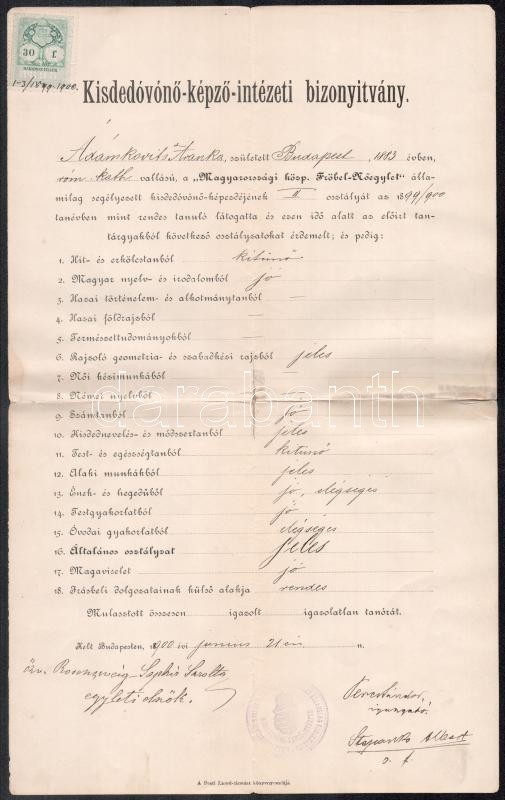 30 f.
1-3/IV 99-1900.
Kisdedóvónő-képző-intézeti bizonyitvány.
Adámkovits Aranka, született Budapest, 1883 évben,
róm. kath. vallású, a „Magyarországi közp. Fröbel-Nőegylet" álla-
milag segélyezett kisdedóvónő-képezdéjének II. osztályát az 1899/900
tanévben mint rendes tanuló látogatta és ezen idő alatt az előirt tan-
tárgyakból következő osztályzatokat érdemelt; és pedig:
1. Hit- és erkölcstanból kitünő
2. Magyar nyelv- és irodalomból jó
3. Hazai történelem- és alkotmánytanból —
4. Hazai földrajzból —
5. Természettudományokból —
6. Rajzoló geometria- és szabadkézi rajzból jeles
7. Női kézimunkából —
8. Német nyelvből —
9. Számtanból jó
10. Kisdednevelés- és módszertanból jeles
11. Test- és egészségtanból kitünő
12. Alaki munkákból jeles
13. Ének- és hegedűből jó, elégséges
14. Testgyakorlatból jó
15. Óvodai gyakorlatból elégséges
16. Általános osztályzat jeles
17. Magaviselet jó
18. Írásbeli dolgozatainak külső alakja rendes
Mulasztott összesen igazolt igazolatlan tanórát.
Kelt Budapesten, 1900 évi junius 21-én n.
özv. Rosenzweig Saphir Sarolta
egyleti elnök.
Peres Sándor,
igazgató.
Stepanko Albert
o. f.
A Pesti Lloyd-társulat könyvnyomdája.
darabanth